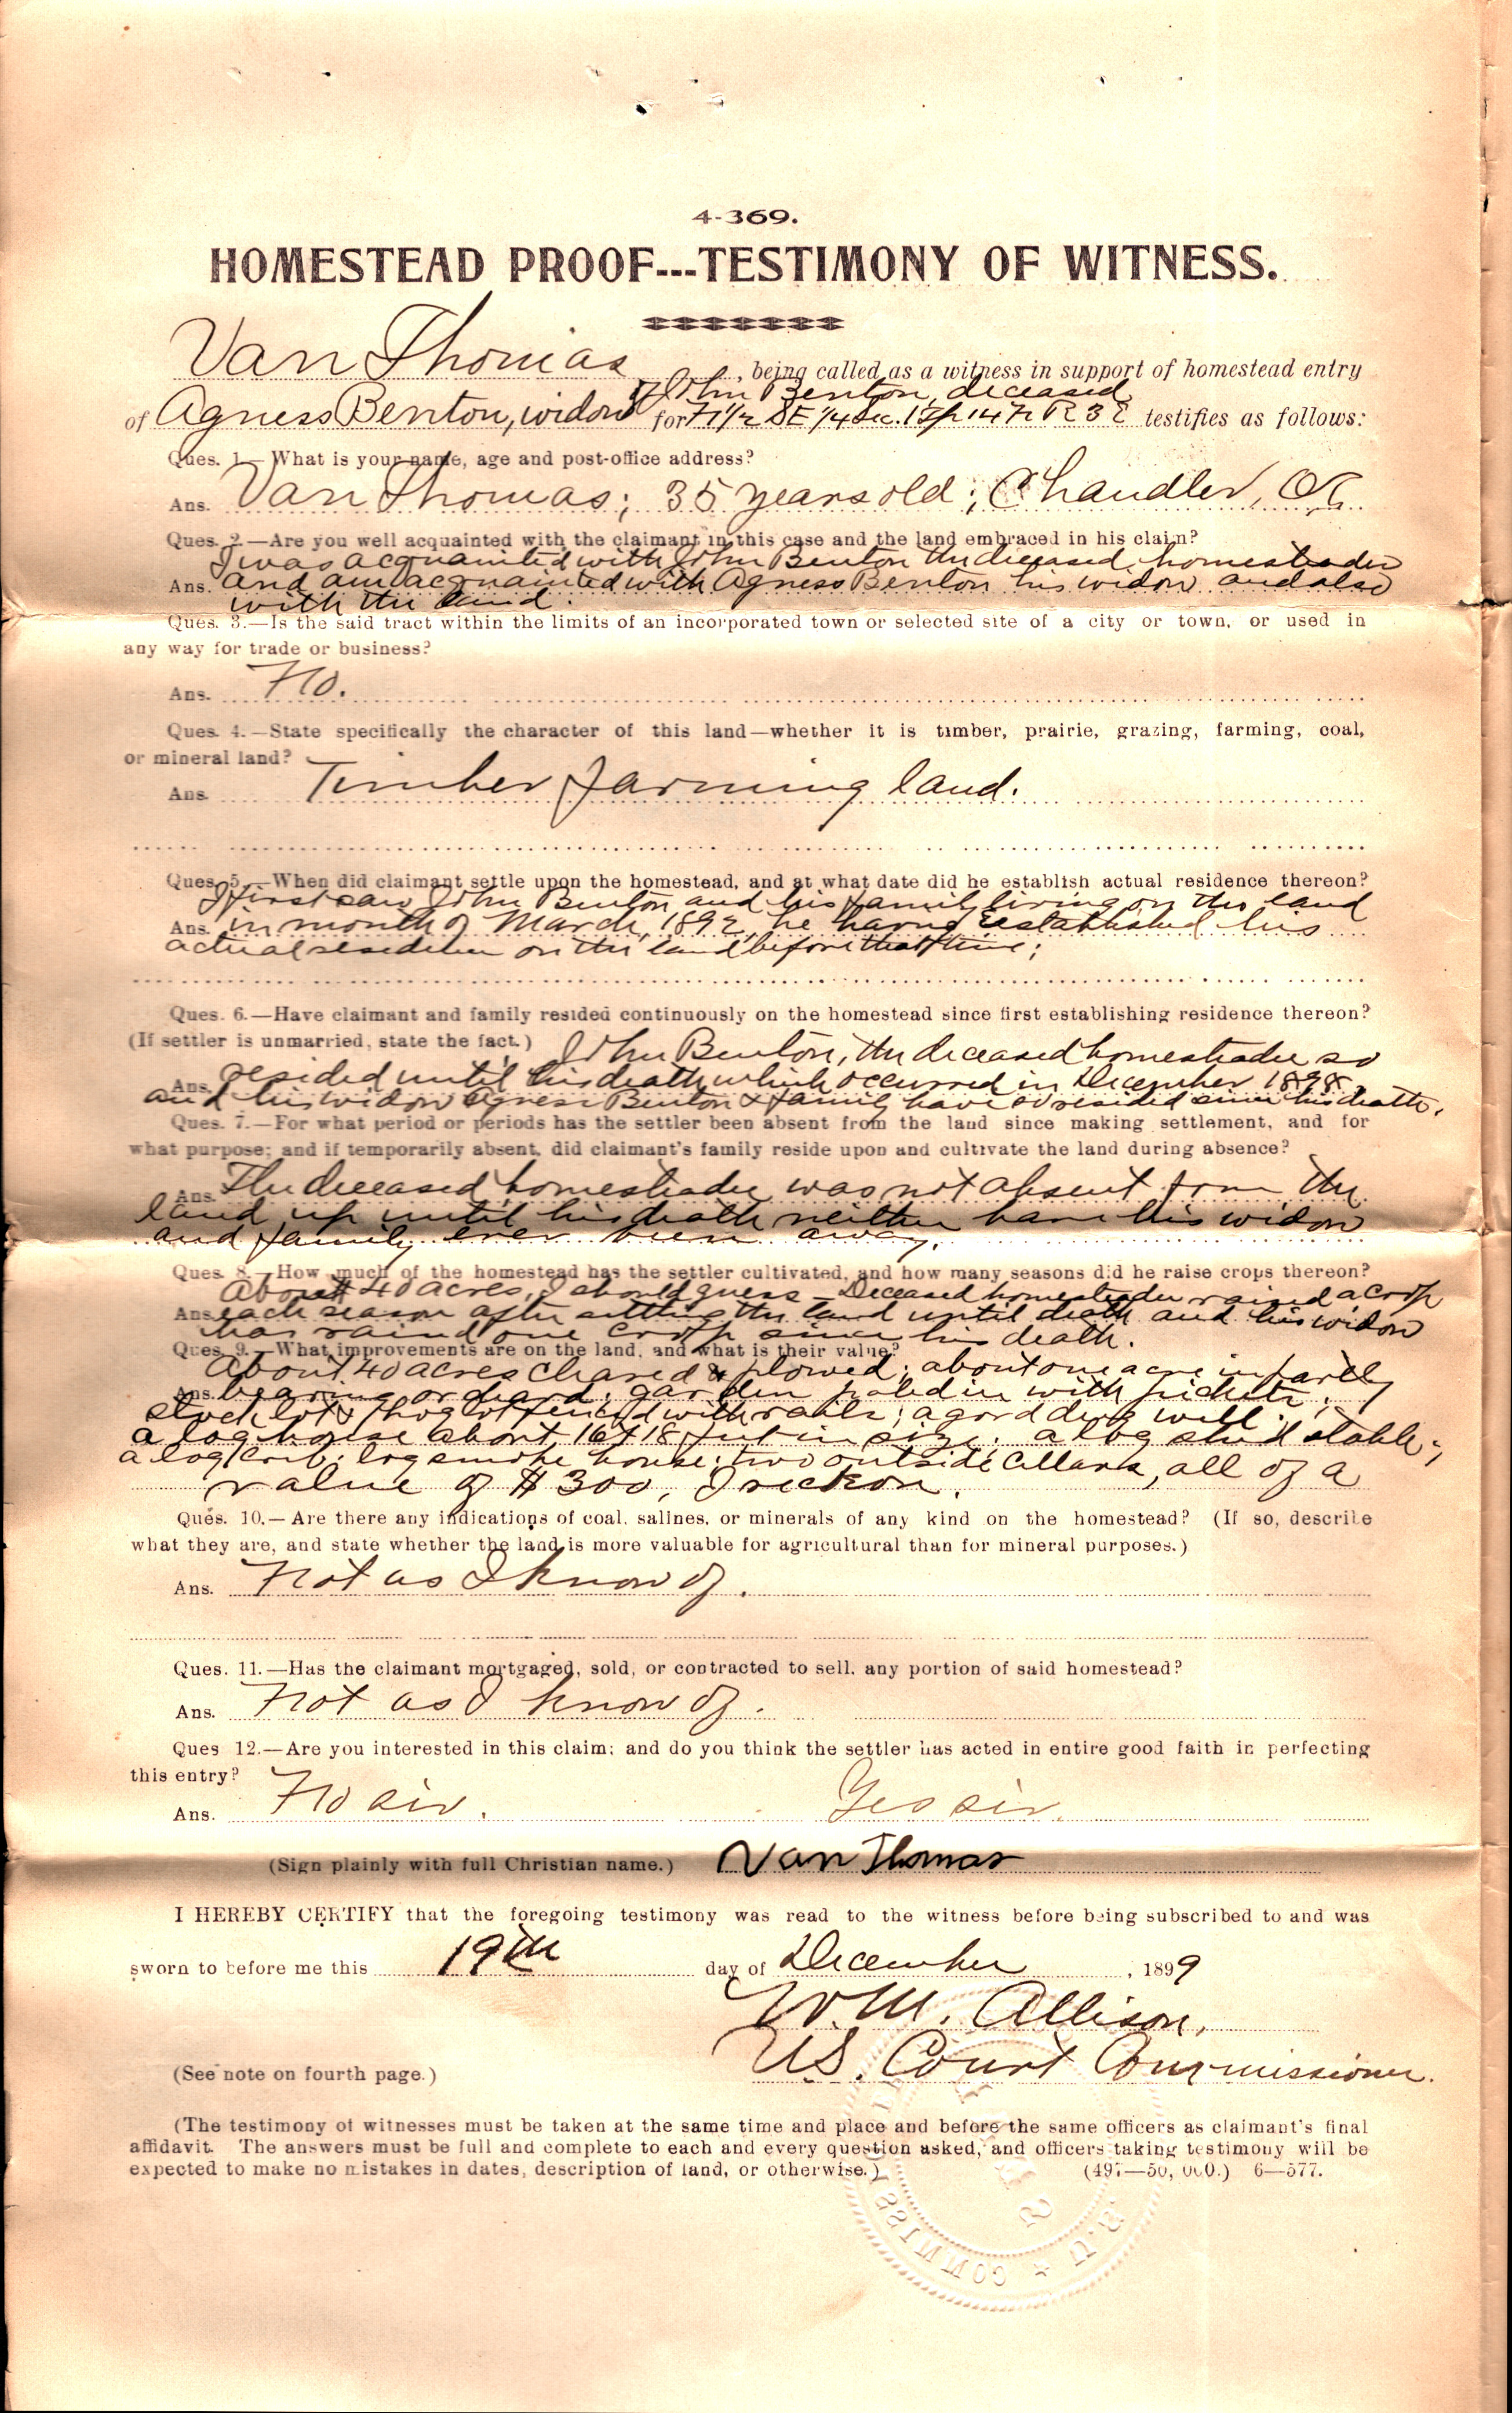 4-369.
HOMESTEAD PROOF---TESTIMONY OF WITNESS.
Van Thomas, being called as a witness in support of homestead entry
of John Benton, deceased
of Agness Benton, widow for N 1/2 SE 1/4 Sec. 1 Tp 14 N R 3 E testifies as follows:
Ques. 1.—What is your name, age and post-office address?
Ans. Van Thomas; 35 years old; Chandler, Ok
Ques. 2.—Are you well acquainted with the claimant in this case and the land embraced in his claim?
I was acquainted with John Benton the deceased homesteader
Ans. and am acquainted with Agness Benton his widow and also
with the land.
Ques. 3.—Is the said tract within the limits of an incorporated town or selected site of a city or town, or used in
any way for trade or business?
Ans. No.
Ques. 4.—State specifically the character of this land—whether it is timber, prairie, grazing, farming, coal,
or mineral land?
Ans. Timber farming land.
Ques. 5.—When did claimant settle upon the homestead, and at what date did he establish actual residence thereon?
I first saw John Benton and his family living on the land
Ans. in month of March, 1892, he having established his
actual residence on the land before that time;
Ques. 6.—Have claimant and family resided continuously on the homestead since first establishing residence thereon?
(If settler is unmarried, state the fact.) John Benton, the deceased homesteader so
Ans. resided until his death which occurred in December 1898,
and his widow Agness Benton & family have so resided since his death.
Ques. 7.—For what period or periods has the settler been absent from the land since making settlement, and for
what purpose; and if temporarily absent, did claimant's family reside upon and cultivate the land during absence?
Ans. The deceased homesteader was not absent from the
land up until his death neither have his widow
and family ever been away.
Ques. 8.—How much of the homestead has the settler cultivated, and how many seasons did he raise crops thereon?
About 40 acres, I should guess - Deceased homesteader raised a crop
Ans. each season after settling the land until death and his widow
has raised one crop since his death.
Ques. 9.—What improvements are on the land, and what is their value?
About 40 acres cleared & plowed; about one acre in partly
Ans. bearing orchard; garden paled in with pickets;
stock lot & hog lot fenced with rails; a good dug well;
a log house about 16 x 18 feet in size; a log shed stable;
a log crib; log smoke house; two outside cellars, all of a
value of $300, I reckon.
Ques. 10.—Are there any indications of coal, salines, or minerals of any kind on the homestead? (If so, describe
what they are, and state whether the land is more valuable for agricultural than for mineral purposes.)
Ans. Not as I know of.
Ques. 11.—Has the claimant mortgaged, sold, or contracted to sell, any portion of said homestead?
Ans. Not as I know of.
Ques 12.—Are you interested in this claim; and do you think the settler has acted in entire good faith in perfecting
this entry?
Ans. No sir. Yes sir.
(Sign plainly with full Christian name.) Van Thomas
I HEREBY CERTIFY that the foregoing testimony was read to the witness before being subscribed to and was
sworn to before me this 19th day of December, 1899
W. M. Allison,
U.S. Court Commissioner.
(See note on fourth page.)
(The testimony of witnesses must be taken at the same time and place and before the same officers as claimant's final
affidavit. The answers must be full and complete to each and every question asked, and officers taking testimony will be
expected to make no mistakes in dates, description of land, or otherwise.) (497—50,000.) 6—577.